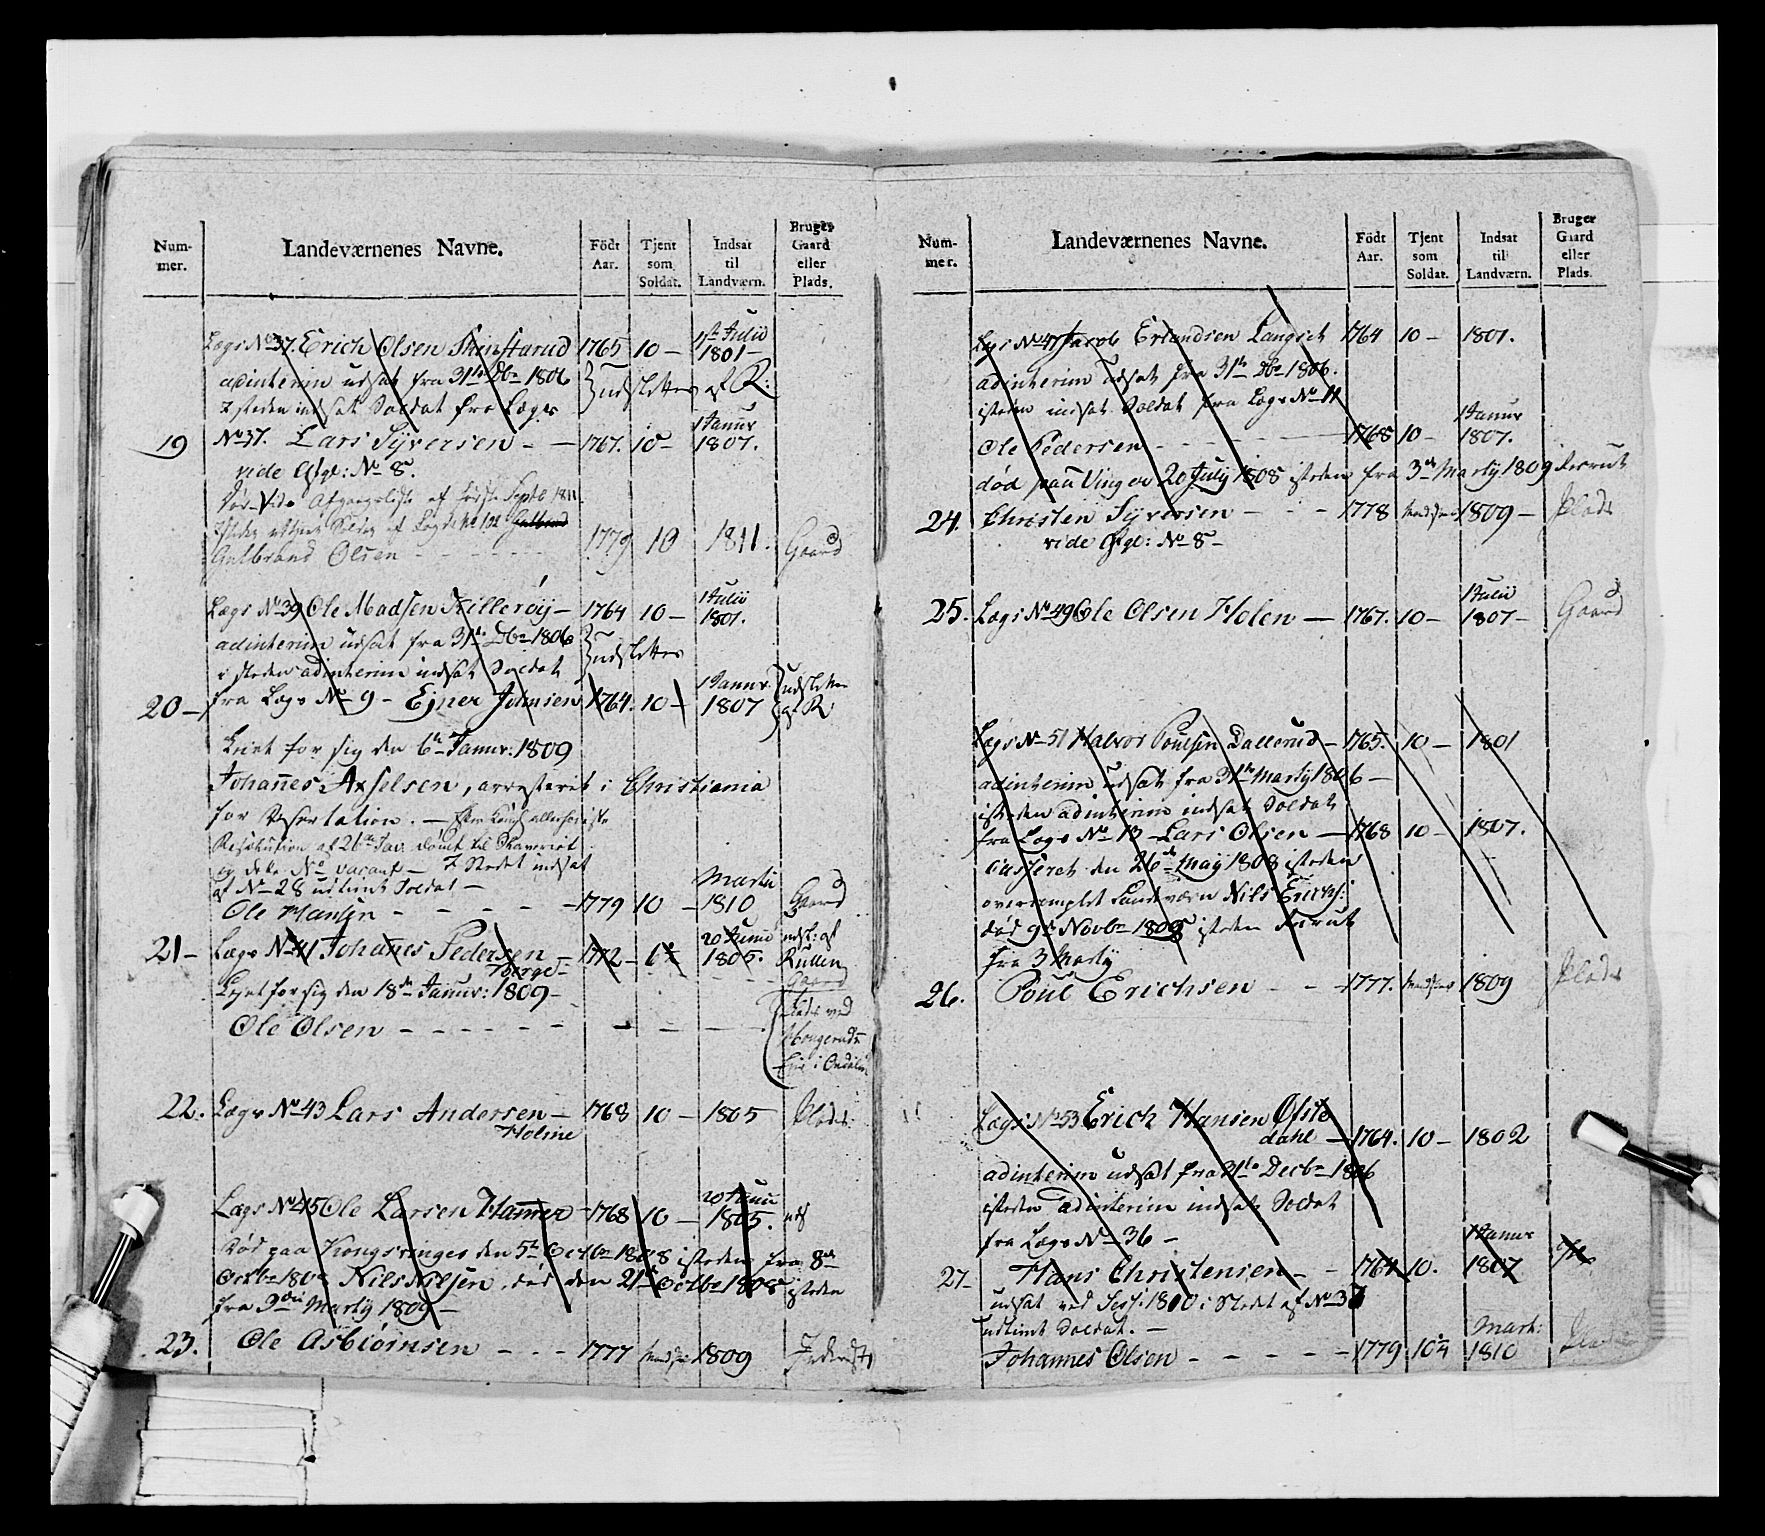 Num-
mer.
Landeværnenes Navne.
Födt
Aar.
Tjent
som
Soldat.
Indsat
til
Landværn.
Bruger
Gaard
eller
Plads.
Lægs No 37. Erich Olsen 1765 10 — 1ste Julii 1801 —
adinterim udsat fra 31te Dbr 1806 udslettes af R:
i steden indsat Soldat fra Lægs
19 No 37. Lars Syversen — 1767. 10 — 1 Janur 1807.
vide Afgl: No 8.
Afgangsliste af Septb 1811
Gulbrand Olsen 1779 10 1811. Gaard
Lægs No 39 Ole Madsen Killerøy — 1764 10 — 1 Julii 1801.
adinterim udsat fra 31te Dbr 1806 udslettes
i steden adinterim indsat Soldat
20 — fra Lægs No 9 — Ejner Johnsen 1764. 10 — 1 Janur 1807 udslettes af R
for sig den 6te Janur: 1809
Johannes Axselsen, arresteret i Christiania
for Desertation. —
Resolution af 26de Jav. dömt til Slaveriet
og dets No vacant — I Stedet indsat
af No 28 udtient Soldat —
Ole Hansen — 1779 10 — Martii 1810 Gaard
21 — Lægs No 41 Johannes Pedersen — 1772 — 6 20 Junii 1805. udsl: af Rullen
Berge — Gaard
for sig den 18de Janur: 1809 —
Ole Olsen — Plads ved
i Oudalen
22. Lægs No 43 Lars Andersen — 1768 10 — 1805 Plads.
Holme
Lægs No 45 Ole Larsen Hamer — 1768 10 — 20 Junii 1805.
Död paa Kongsvinger den 5te Octbr 1808 isteden fra 8de
Octbr 1808 Nils Nilsen, död den 21 Octbr 1808 isteden
fra 3die Marty 1809 —
23. Ole Asbiörnsen — 1777 1809 Inderst
Num-
mer.
Landeværnenes Navne.
Födt
Aar.
Tjent
som
Soldat.
Indsat
til
Landværn.
Bruger
Gaard
eller
Plads.
Lægs No 47 Jacob Erlandsen Langset 1764 10 — 1801.
adinterim udsat fra 31te Dbr 1806.
isteden indsat Soldat fra Lægs No 11
Ole Pedersen — 1768 10 — 1 Janur 1807.
död paa Vinger 20 July 1808 isteden fra 3de Marty 1809 Recrut
24. Christen Syversen — 1778 1809 — Plads
vide Afgl: No 8 —
25. Lægs No 49 Ole Olsen Holen — 1767. 10 — 1 Julii 1807 — Gaard
Lægs No 51 Halvor Poulsen Dallerud — 1765. 10 — 1801
adinterim udsat fra 31te Marty 1806 —
isteden adinterim indsat Soldat
fra Lægs No 13 — Lars Olsen — 1768 10 — 1807.
Casseret den 26de May 1808 isteden
overcomplet Landeværn Nils Erichs:
död 9de Novbr 1808 isteden Recrut
fra 3 Marty
26. Poul Erichsen — 1777. 1809 Plads
Lægs No 53 Erich Hansen Ofste
dahl — 1764. 10 — 1802
adinterim udsat fra 31te Decbr 1806
isteden adinterim indsat Soldat
fra Lægs No 36 —
27 — Hans Christensen — 1764 10. 1 Janur 1807
udsat ved Sess: 1810 i Stedet af No 37
udtient Soldat. —
Johannes Olsen — 1779 10 Mart: 1810 Plads